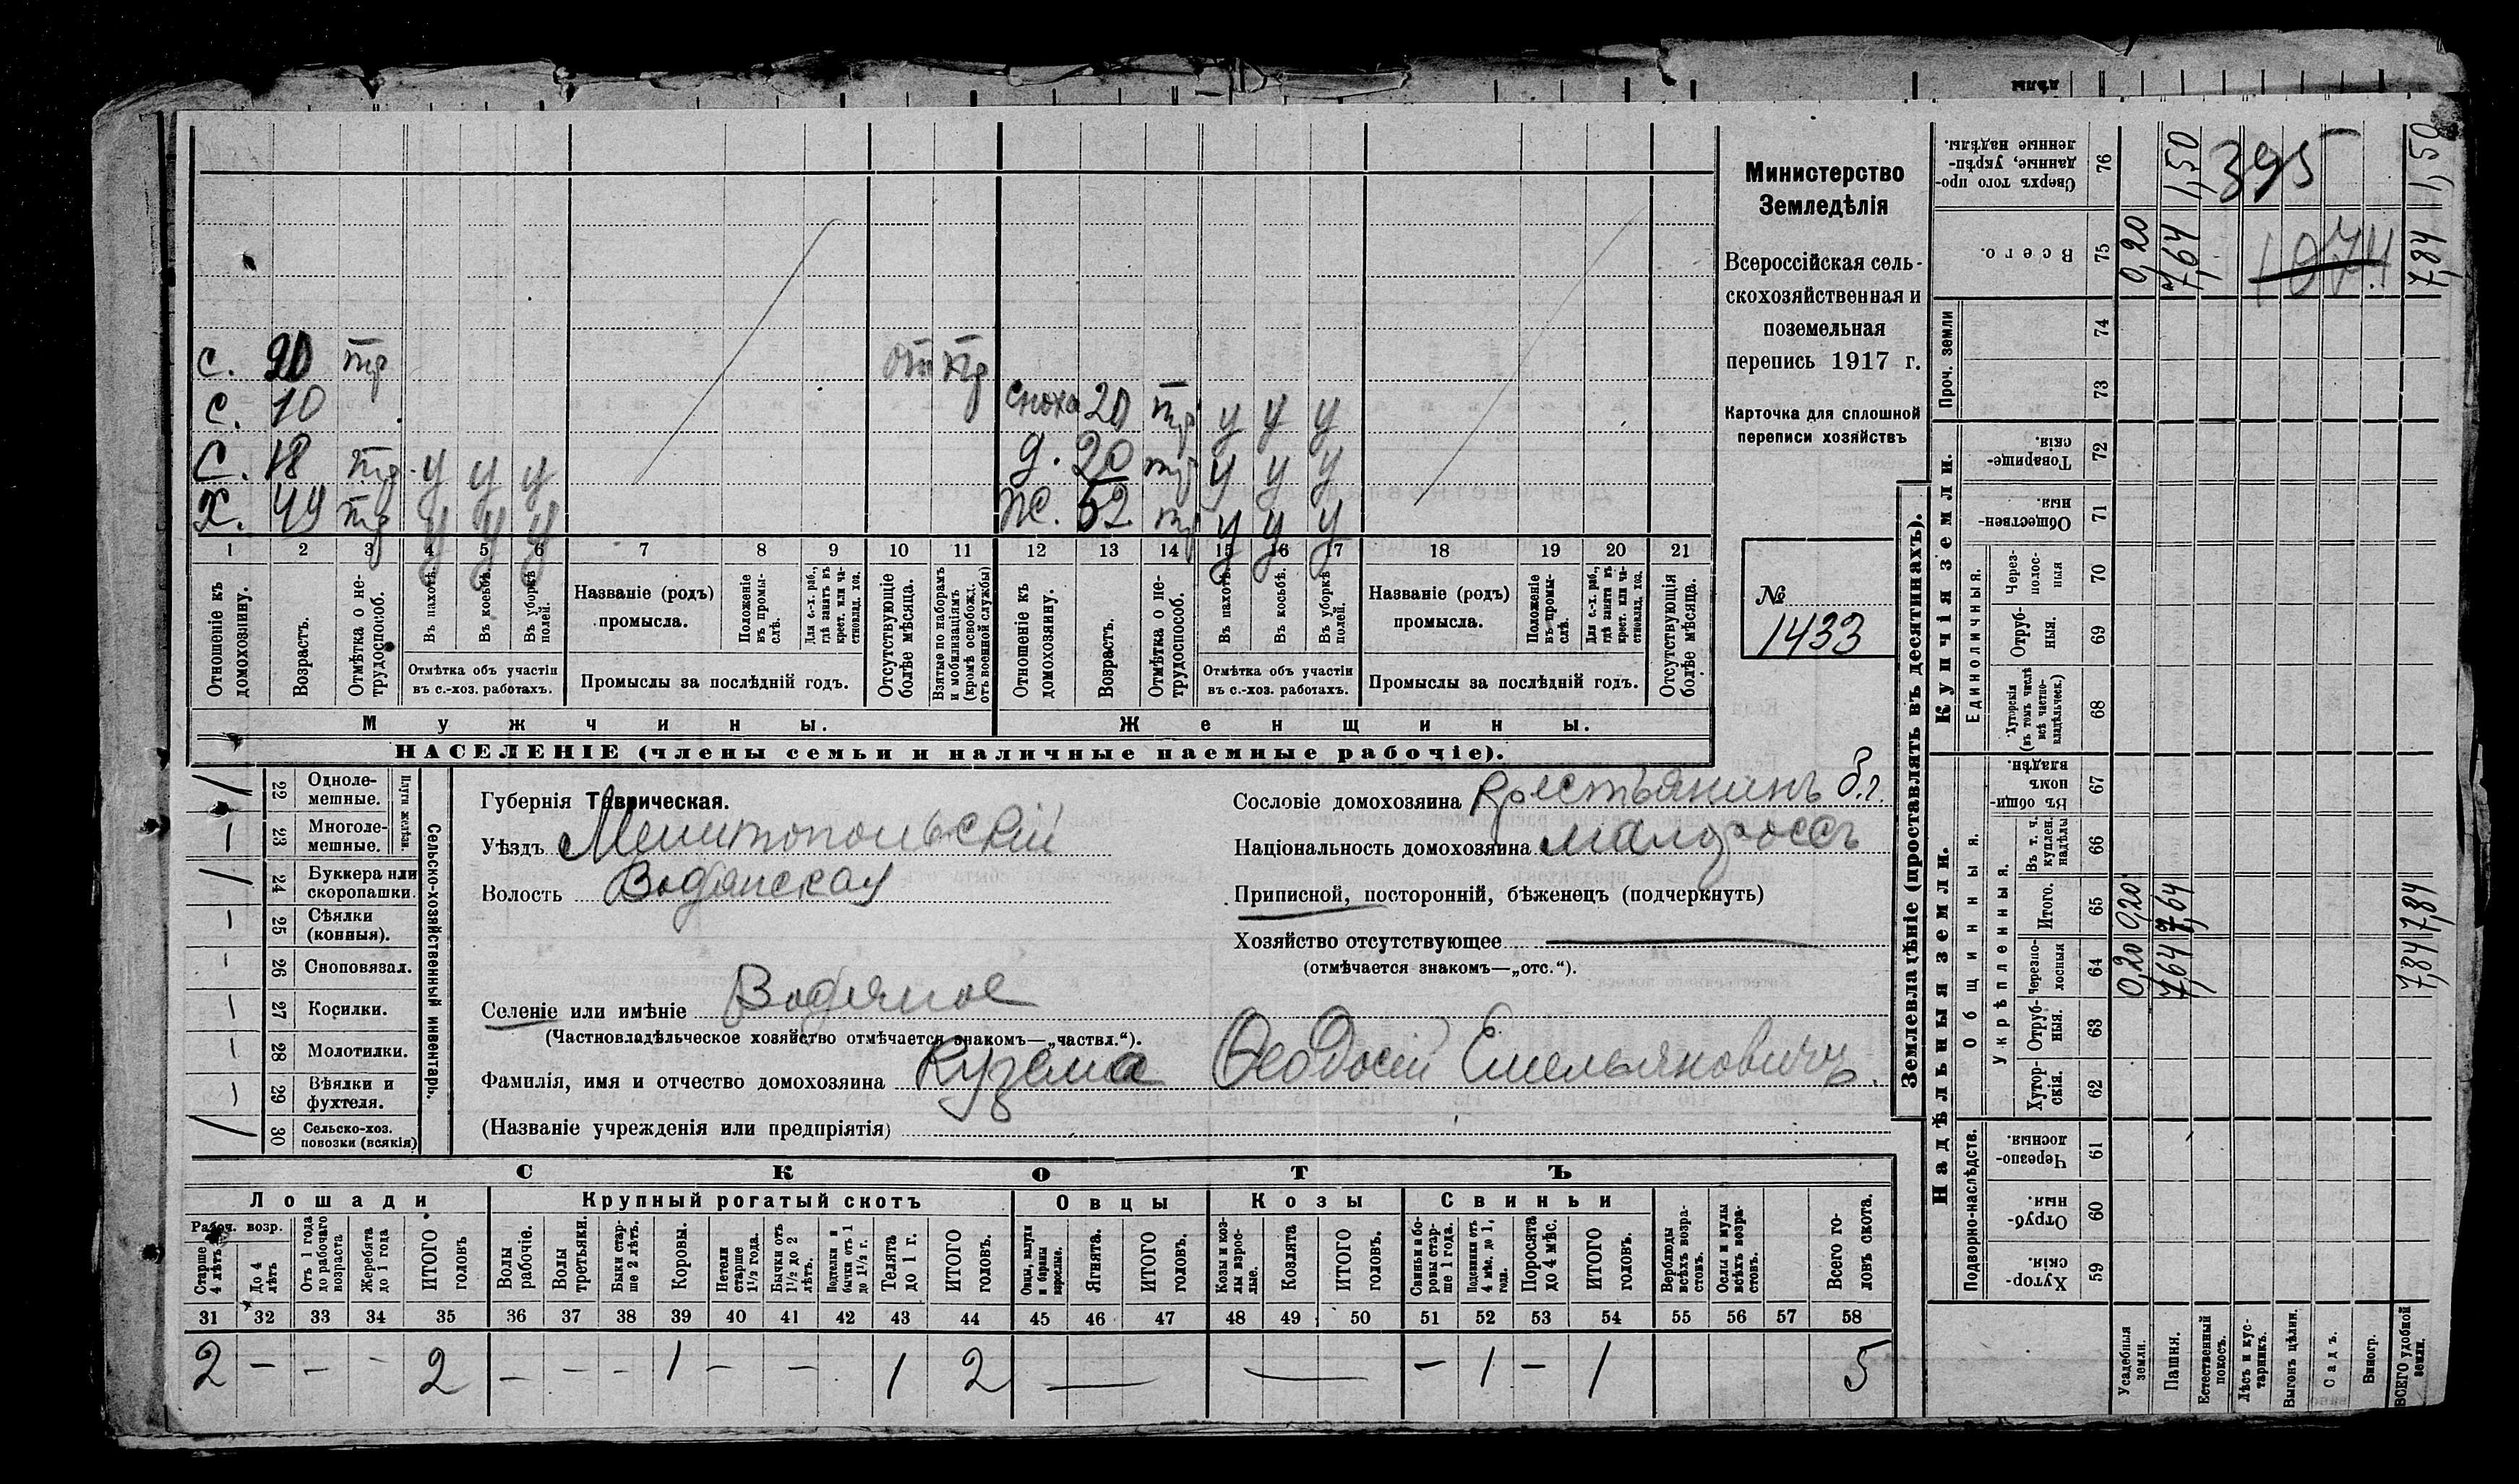 с. 20 тр от тр
с. 10 сноха 20 тр у у у
с. 18 тр у у у д. 20 тр у у у
х. 49 тр у у у ж. 52 тр у у у
1 2 3 4 5 6 7 8 9 10 11 12 13 14 15 16 17 18 19 20 21
Отношеніе къ домохозяину.
Возрастъ.
Отмѣтка о нетрудоспособ.
Въ пахотѣ.
Въ косьбѣ.
Въ уборкѣ полей.
Отмѣтка объ участіи
въ с.-хоз. работахъ.
Названіе (родъ)
промысла.
Положеніе въ промыслѣ.
Для с.-х. раб., гдѣ занятъ въ крест. или частновлад. хоз.
Промыслы за послѣдній годъ.
Отсутствующіе болѣе мѣсяца.
Взятые по наборамъ и мобилизаціямъ (кромѣ освобожд. отъ военной службы)
Отношеніе къ домохозяину.
Возрастъ.
Отмѣтка о нетрудоспособ.
Въ пахотѣ.
Въ косьбѣ.
Въ уборкѣ полей.
Отмѣтка объ участіи
въ с.-хоз. работахъ.
Названіе (родъ)
промысла.
Положеніе въ промыслѣ.
Для с.-х. раб., гдѣ занята въ крест. или частновлад. хоз.
Промыслы за послѣдній годъ.
Отсутствующія болѣе мѣсяца.
Мужчины. Женщины.
НАСЕЛЕНІЕ (члены семьи и наличные наемные рабочіе).
Министерство
Земледѣлія
Всероссійская сель-
скохозяйственная и
поземельная
перепись 1917 г.
Карточка для сплошной
переписи хозяйствъ
№
1433
Сельско-хозяйственный инвентарь.
Плуги желѣзн.
22 Одноле-
мешные.
23 Многоле-
мешные.
24 Буккера или
скоропашки.
25 Сѣялки
(конныя).
26 Сноповязал.
27 Косилки.
28 Молотилки.
29 Вѣялки и
фухтеля.
30 Сельско-хоз.
повозки (всякія)
Губернія Таврическая.
Уѣздъ Мелитопольскій
Волость Водянская
Селеніе или имѣніе Водяное
(Частновладѣльческое хозяйство отмѣчается знакомъ—„частвл.“).
Фамилія, имя и отчество домохозяина Кузема Ѳеодосій Емельяновичъ.
(Названіе учрежденія или предпріятія)
Сословіе домохозяина крестьянинъ б.г.
Національность домохозяина малороссъ
Приписной, посторонній, бѣженецъ (подчеркнуть)
Хозяйство отсутствующее
(отмѣчается знакомъ—„отс.“).
СКОТЪ
Лошади Крупный рогатый скотъ Овцы Козы Свиньи
Рабоч. возр.
Старше 4 лѣтъ
До 4 лѣтъ
Отъ 1 года до рабочаго возраста
Жеребята до 1 года
ИТОГО головъ
Волы рабочіе.
Волы третьяки.
Быки старше 2 лѣтъ.
Коровы.
Петели старше 1½ года.
Бычки отъ 1½ до 2 лѣтъ.
Подтелки и бычки отъ 1 до 1½ г.
Телята до 1 г.
ИТОГО головъ.
Овцы, валухи и бараны взрослые.
Ягнята.
ИТОГО головъ.
Козы и козлы взрослые.
Козлята
ИТОГО головъ.
Свиньи и боровы старше 1 года.
Подсвинки отъ 4 мѣс. до 1, года.
Поросята до 4 мѣс.
ИТОГО головъ.
Верблюды всѣхъ возрастовъ.
Ослы и мулы всѣхъ возрастовъ.
Всего головъ скота.
31 32 33 34 35 36 37 38 39 40 41 42 43 44 45 46 47 48 49 50 51 52 53 54 55 56 57 58
2 – – – 2 – – – 1 – – 1 2 — — – 1 – 1 5
Землевладѣніе (проставлять въ десятинахъ).
Купчія земли.
Надѣльныя земли.
Проч. земли
Единоличныя.
Общинныя.
Укрѣпленныя.
Подворно-наслѣдств.
76 Сверхъ того проданные, укрѣпленные надѣлы.
75 Всего.
74
73
72 Товарищескія.
71 Общественныя.
70 Черезполосныя
69 Отрубныя.
68 Хуторскія (въ томъ числѣ всѣ частновладѣльческ.)
67 Въ общинномъ владѣн.
66 Въ т. ч. куплен. надѣлы
65 Итого.
64 Черезполосныя
63 Отрубныя.
62 Хуторскія.
61 Черезполосныя.
60 Отрубныя.
59 Хуторскія.
Усадебныя земли.
Пашня.
Естественный покосъ.
Лѣсъ и кустарникъ.
Выгонъ цѣлин.
Садъ.
Виногр.
ВСЕГО удобной земли.
0,20 0,20 0,20
7,64 7,64 7,64 1,50
395
7,84 7,84 7,84 1,50